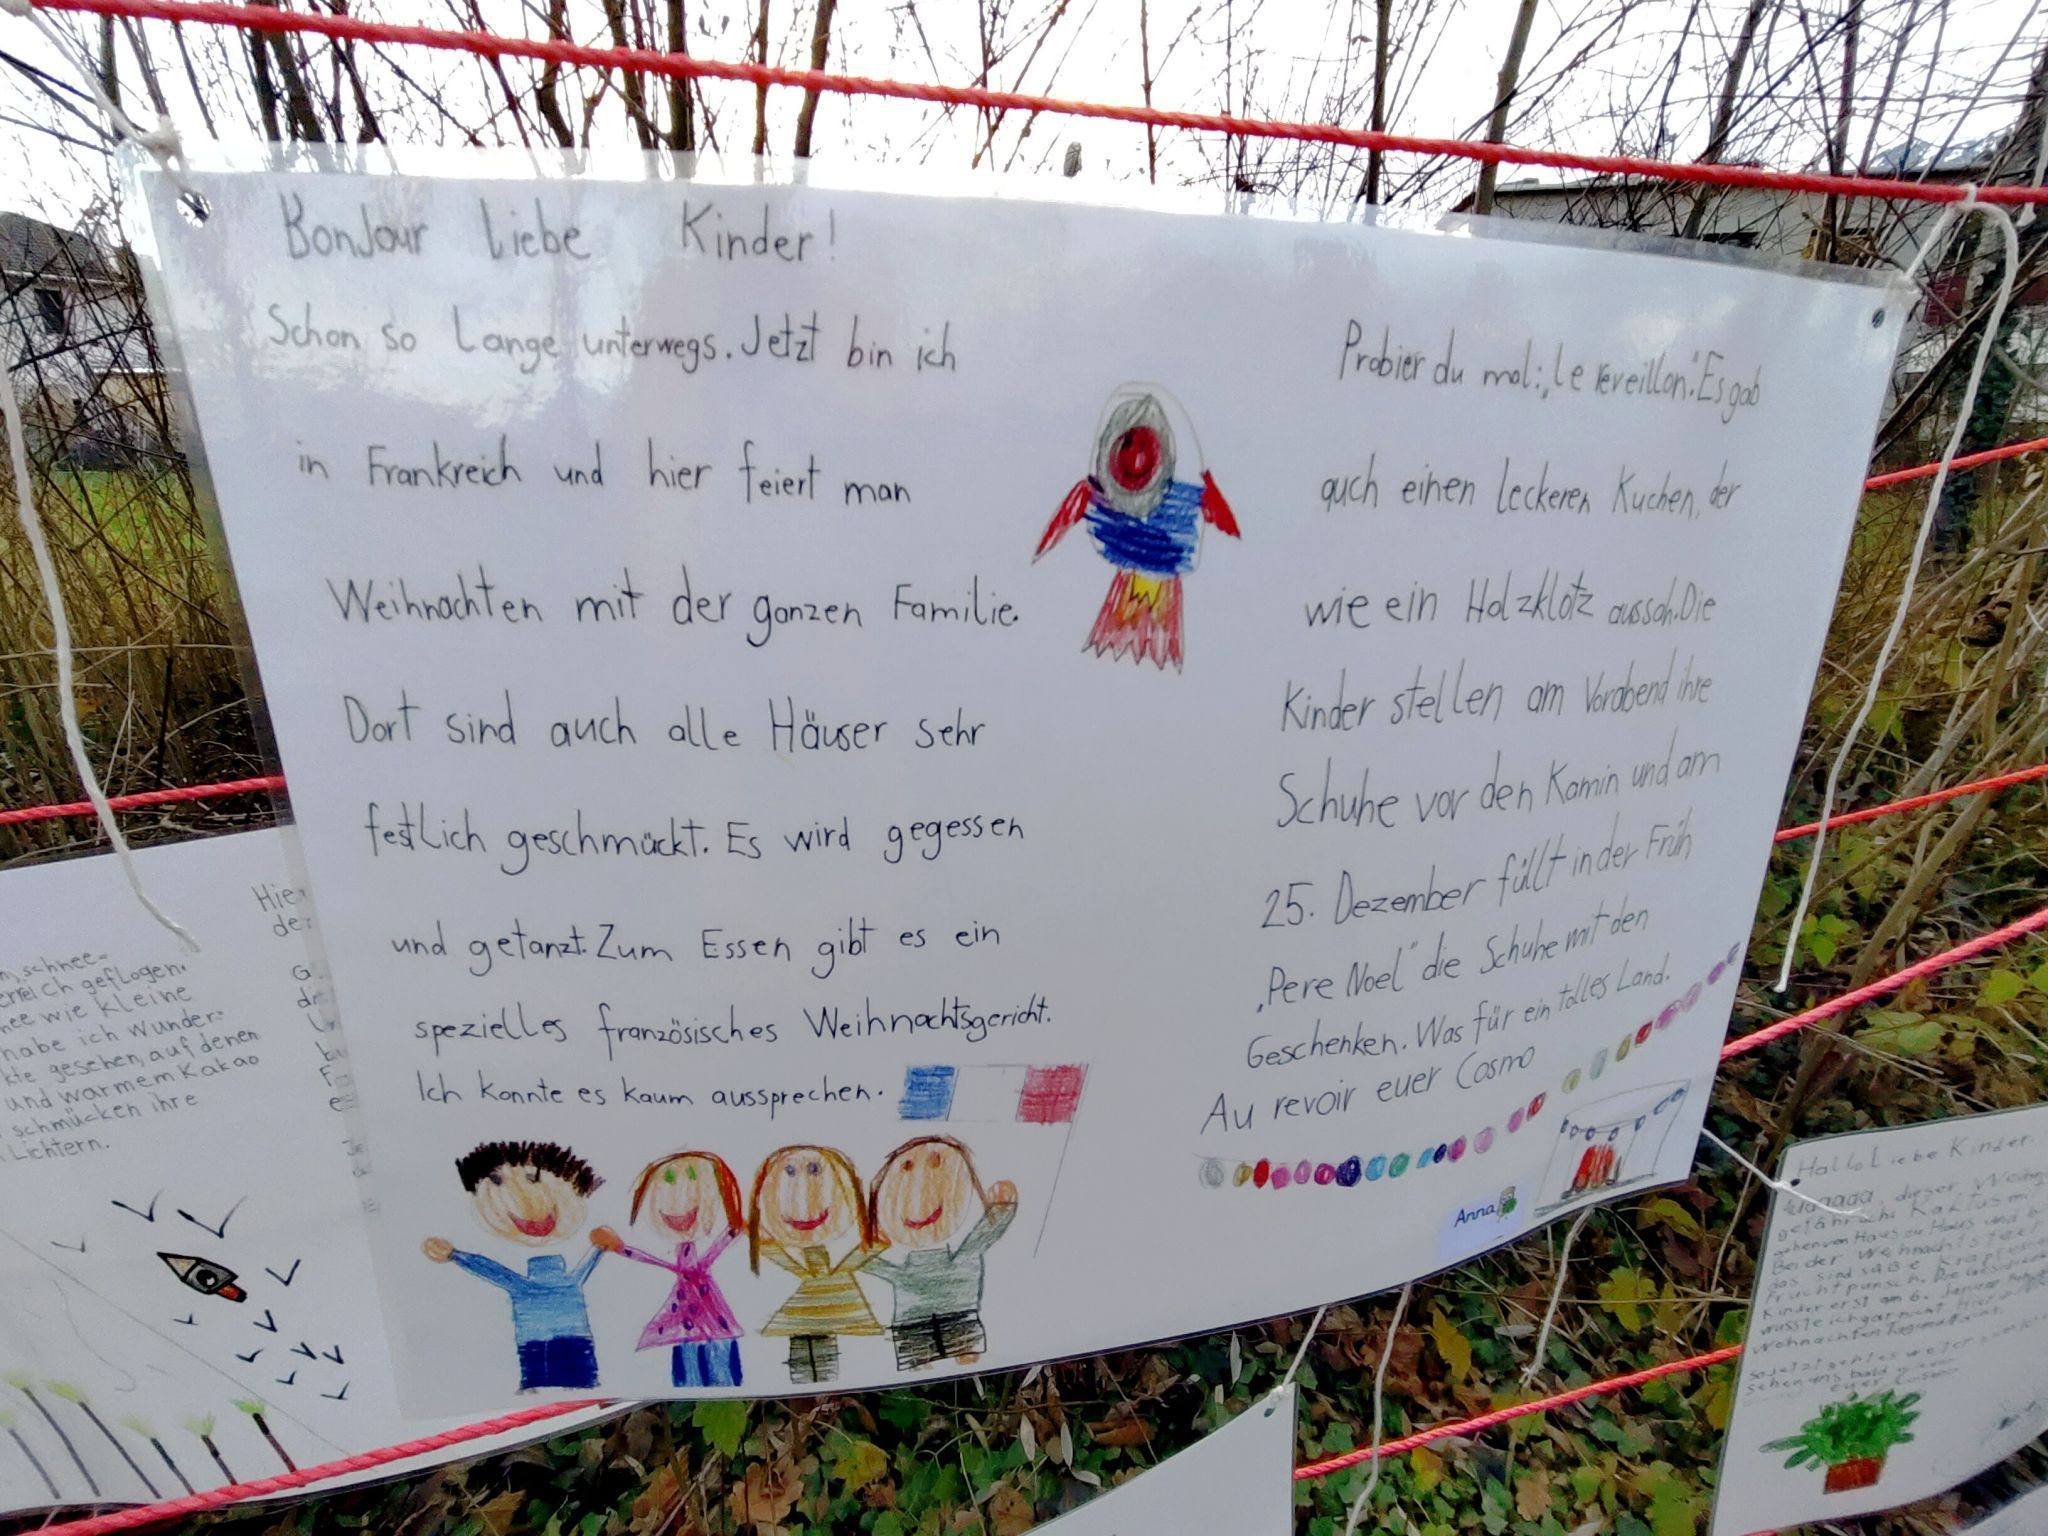 BonJour liebe Kinder!
Schon so Lange unterwegs. Jetzt bin ich
in Frankreich und hier feiert man
Weihnachten mit der ganzen Familie.
Dort sind auch alle Häuser sehr
festlich geschmückt. Es wird gegessen
und getanzt. Zum Essen gibt es ein
spezielles französisches Weihnachtsgericht.
Ich konnte es kaum aussprechen.
Probier du mal: „Le reveillon." Es gab
auch einen leckeren Kuchen, der
wie ein Holzklotz aussah. Die
Kinder stellen am Vorabend ihre
Schuhe vor den Kamin und am
25. Dezember füllt in der Früh
„Pere Noel" die Schuhe mit den
Geschenken. Was für ein tolles Land.
Au revoir euer Cosmo
Anna
Hier
schnee-
geflogen.
wie kleine
habe ich Wunder-
gesehen, auf denen
und warmem Kakao
schmücken ihre
Lichtern.
Hallo Liebe Kinder
dieser
Kaktus
gehen von Haus zu Haus und
Bei der Weihnachtsfeier
das sind süße
Fruchtpunsch. Die
Kinder erst am 6. Januar
wusste ich gar nicht
so jetzt geht es weiter
sehen uns bald
euer Cosmo